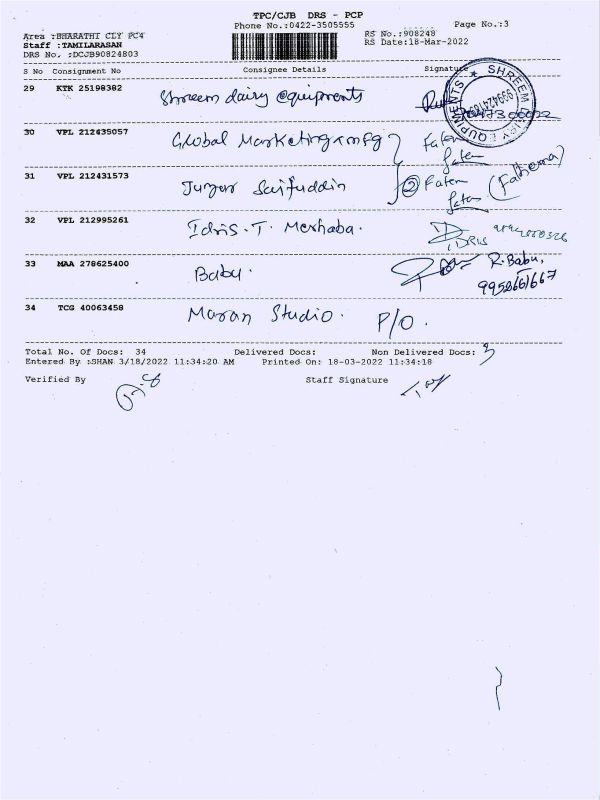 TPC/CJB DRS - PCP
Phone No.:0422-3505555 Page No.:3
Area :BHARATHI CLY PC4 RS No.:908248
Staff :TAMILARASAN RS Date:18-Mar-2022
DRS No. :DCJB90824803
S No Consignment No Consignee Details Signature
29 KTK 25198382 Shreem dairy equipments
SHREEM DAIRY EQUIPMENTS
30 VPL 212435057 Global Marketing & mfg Fatem
fatem
31 VPL 212431573 Juzer Saifuddin 2 Fatem (Fathema)
fatem
32 VPL 212995261 Idris. T. Merhaba. IDRIS
33 MAA 278625400 Baby. R. Babu,
9952661667
34 TCG 40063458 Maran Studio. P/O.
Total No. Of Docs: 34 Delivered Docs: Non Delivered Docs: 3
Entered By :SHAN 3/18/2022 11:34:20 AM Printed On: 18-03-2022 11:34:18
Verified By Staff Signature